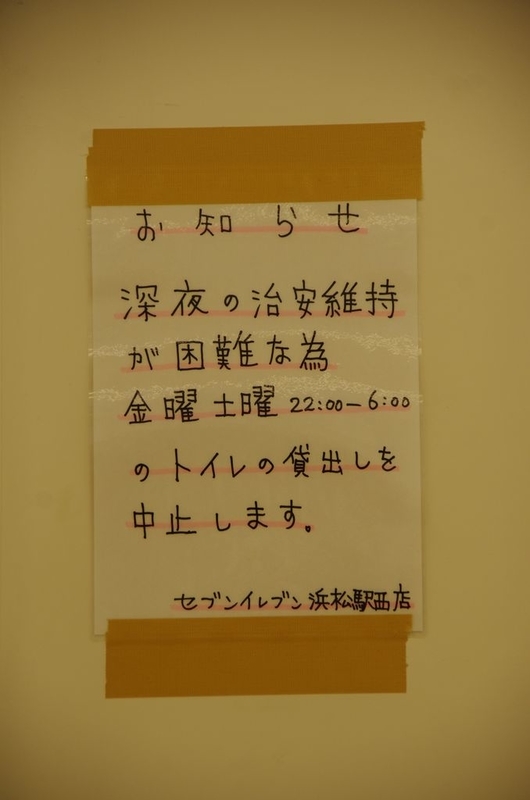 お知らせ
深夜の治安維持
が困難な為
金曜土曜22:00-6:00
のトイレの貸出しを
中止します。
セブンイレブン浜松駅西店